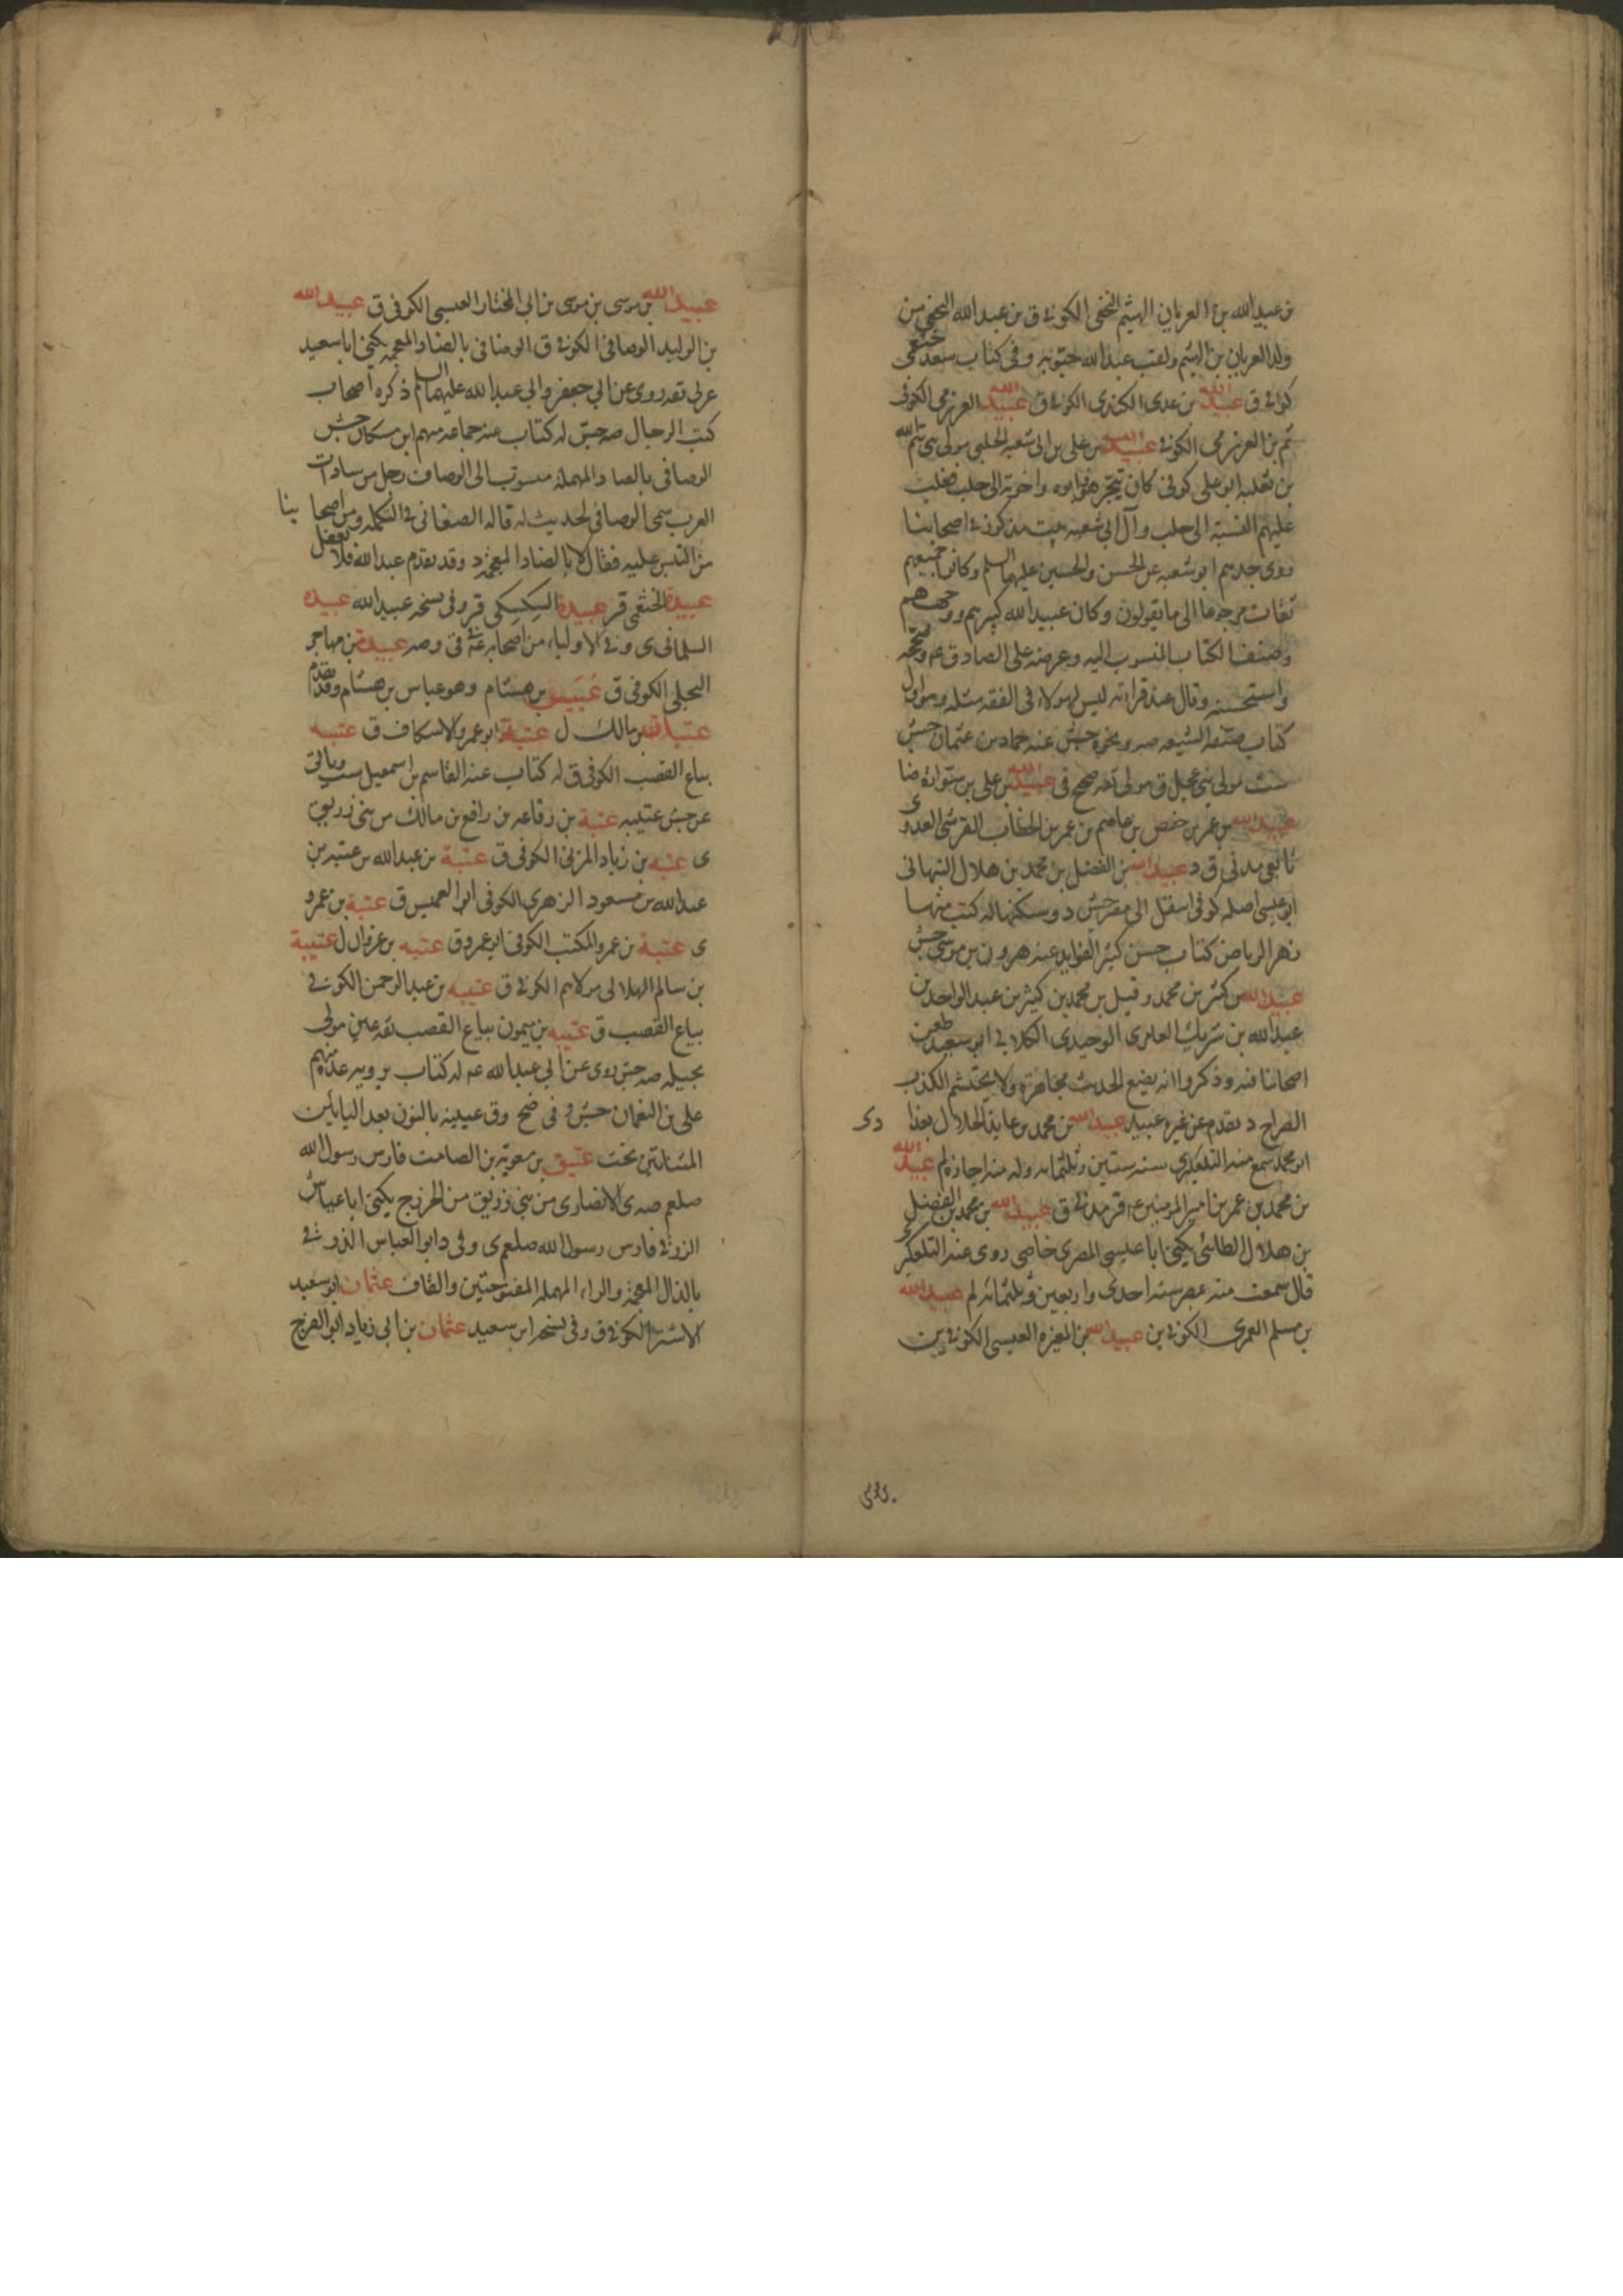 بن عبيد الله بن العريان الهيثم النخعي الكوفي ق بن عبد الله النخعي من
ولد العريان بن الهيثم ولقب عبد الله وفي كتاب سعد خثعمي
كوفي ق عبيد الله بن عدي الكندي الكوفي ق عبيد الله العرزمي الكوفي
ثم بن العرزمي الكوفي عبيد الله بن علي بن ابي شعبه الحلبي مولى بني تيم الله
بن ثعلبه ابو علي كوفي كان يتجر هو وابوه واخوته الى حلب فغلب
عليهم النسبة الى حلب وآل ابي شعبه بيت مذكور في اصحابنا
روى جدهم ابو شعبه عن الحسن والحسين عليهما السلم وكانوا جميعهم
ثقات مرجوعا الى ما يقولون وكان عبيد الله كبيرهم ووجههم
وصنف الكتاب المنسوب اليه وعرضه على الصادق عم وصححه
واستحسنه وقال عند قراءته ليس لهولاء في الفقه مثله وهو اول
كتاب صنفه الشيعه صه ونحوه جش عنه حماد بن عثمان جش
ست مولى بني عجل ق مولى ثقه صحح في عبيد الله بن علي بن سواره ضا
عبيد الله بن عمر بن حفص بن عاصم بن عمر بن الخطاب القرشي العدوى
تابعي مدني ق د عبيد الله بن الفضل بن محمد بن هلال النبهاني
ابو عيسى اصله كوفي انتقل الى مصر جش د وسكنها له كتب منها
زهر الرياض كتاب حسن كثير الفوايد عنه هرون بن موسى جش
عبيد الله بن كثير بن محمد وقيل بن محمد بن كثير بن عبد الواحد بن
عبد الله بن شريك العامري الوحيدي الكلابي ابو سعيد طعن
اصحابنا فيه وذكروا انه يضع الحديث مجاهرة ولا يحتشم الكذب
الصراح د تقدم عن غيره عبيد عبيد الله بن محمد بن عايذ الحلال بغدا دى
ابو محمد سمع منه التلعكبري سنه ستين وثلثمائه وله منه اجازه لم عبيد الله
بن محمد بن عمر بن امير المومنين عم قر مدني ق عبيد الله بن محمد بن الفضل
بن هلال الطائي يكنى ابا عيسى المصري خاصي روى عنه التلعكبرى
قال سمعت منه بمصر سنه احدى واربعين وثلثمائه لم عبيد الله
بن مسلم العمري الكوفي ين عبيد الله بن المغيره العبسي الكوفي ين
عبيد الله بن موسى بن موسى بن ابي المختار العبسي الكوفي ق عبيد الله
بن الوليد الوصافي الكوفي ق الوضافي بالضاد المعجمه يكنى ابا سعيد
عربي ثقه روى عن ابي جعفر وابي عبد الله عليهما السلم ذكره اصحاب
كتب الرجال صه جش له كتاب عنه جماعه منهم ابن مسكان جش
الوصافي بالصاد المهمله منسوب الى الوصاف رجل من سادات
العرب سمى الوصافي لحديث له قاله الصغاني في التكمله ومن اصحابنا
من التبس عليه فقال الا بالضاد المعجمه د وقد تقدم عبد الله فلا تغفل
عبيدة الخثعمي قر عبيدة السكسكي قر وفي نسخه عبيد الله عبيده
السلماني ى وفي الاولياء من اصحابه عم في وصه عبيدة بن مهاجر
البجلي الكوفي ق عبيس بن هشام وهو عباس بن هشام وقد تقدم
عتبان بن مالك ل عتبة ابو عمرو الاسكاف ق عتبه
بياع القصب الكوفي ق له كتاب عنه القاسم بن اسمعيل ست وياتى
عن جش عتيبه عتبة بن رفاعه بن رافع بن مالك من بني زريق
ى عتبه بن زياد المزني الكوفي ق عتبة بن عبد الله بن عتبه بن
عبد الله بن مسعود الزهري الكوفي ابو العميس ق عتبة بن عمرو
ى عتبة بن عمرو المكتب الكوفي ابو عمرو ق عتبه بن غزوان ل عتيبة
بن سالم الهلالي مولاهم الكوفي ق عتيبه بن عبد الرحمن الكوفي
بياع القصب ق عتيبه بن ميمون بياع القصب ثقه عين مولى
بجيله صه جش روى عن ابي عبد الله عم له كتاب يرويه عده منهم
علي بن النعمان جش وفي ضح وق عيينه بالنون بعد اليائين
المثناتين تحت عتيق بن معويه بن الصامت فارس رسول الله
صلعم صه ى الانصاري من بني زريق من الخزرج يكنى ابا عياش
الزرقي فارس رسول الله صلعم ى وفي د ابو العباس الذروقى
بالذال المعجمه والراء المهمله المفتوحتين والقاف عثمان ابو سعيد
الاشتر الكوفي ق وفي نسخه ابن سعيد عثمان بن ابي زياد ابو الفرج